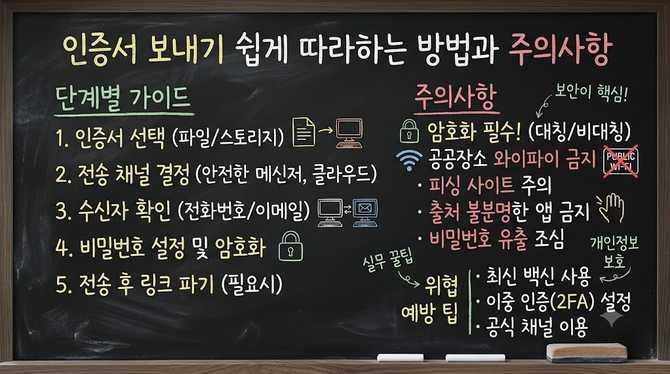 인증서 보내기 쉽게 따라하는 방법과 주의사항
단계별 가이드
1. 인증서 선택 (파일/스토리지)
2. 전송 채널 결정 (안전한 메신저, 클라우드)
3. 수신자 확인 (전화번호/이메일)
4. 비밀번호 설정 및 암호화
5. 전송 후 링크 파기 (필요시)
주의사항
보안이 핵심!
암호화 필수! (대칭/비대칭)
공공장소 와이파이 금지
PUBLIC
WI-FI
· 피싱 사이트 주의
· 출처 불분명한 앱 금지
· 비밀번호 유출 조심
실무 꿀팁
개인정보
보호
위협
예방 팁
· 최신 백신 사용
· 이중 인증(2FA) 설정
· 공식 채널 이용